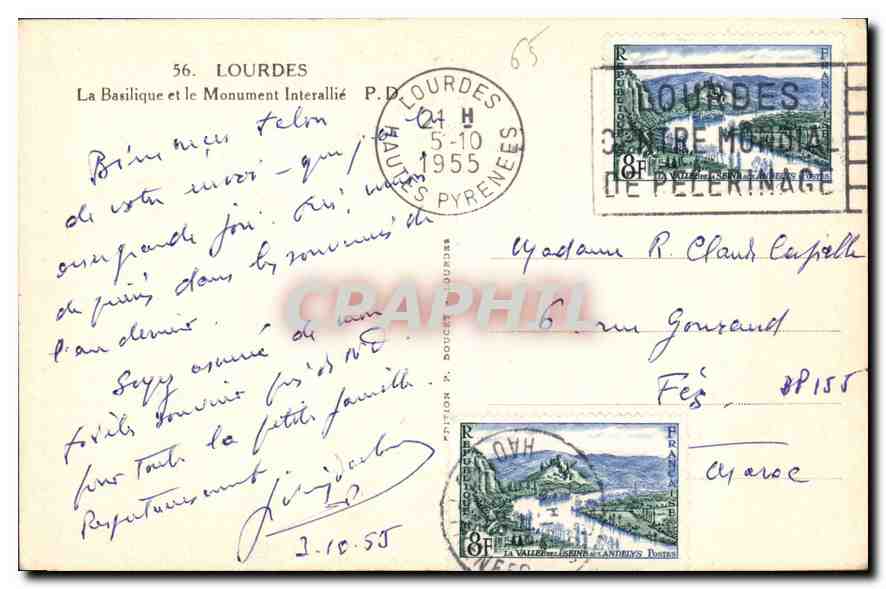 56. LOURDES
La Basilique et le Monument Interallié P. D.
65
LOURDES
21 H
5-10
1955
HAUTES PYRENEES
REPUBLIQUE FRANÇAISE
8F
LA VALLEE DE LA SEINE AUX ANDELYS POSTES
LOURDES
CENTRE MONDIAL
DE PELERINAGE
de votre envoi - que j'ai lu
grande joie.
de dans les souvenirs de
l'an dernier.
Soyez assurée de mon
souvenir près de N.D.
pour toute la petite famille.
Respectueusement
3-10-55
EDITION P. DOUCET LOURDES
Madame R. Claude
6, rue Gouraud
Fès, BP 155
Maroc
REPUBLIQUE FRANÇAISE
8F
LA VALLEE DE LA SEINE AUX ANDELYS POSTES
CPAPHIL